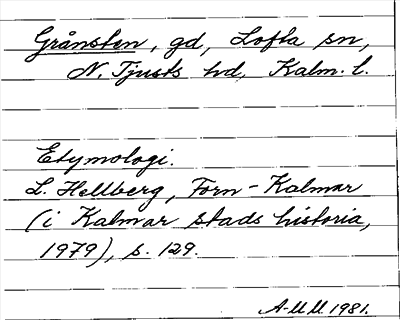 Grånsten, gd, Lofta sn,
N. Tjusts hd, Kalm. l.
Etymologi.
L. Hellberg, Forn-Kalmar
(i Kalmar stads historia,
1979), s. 129.
A-M M. 1981.